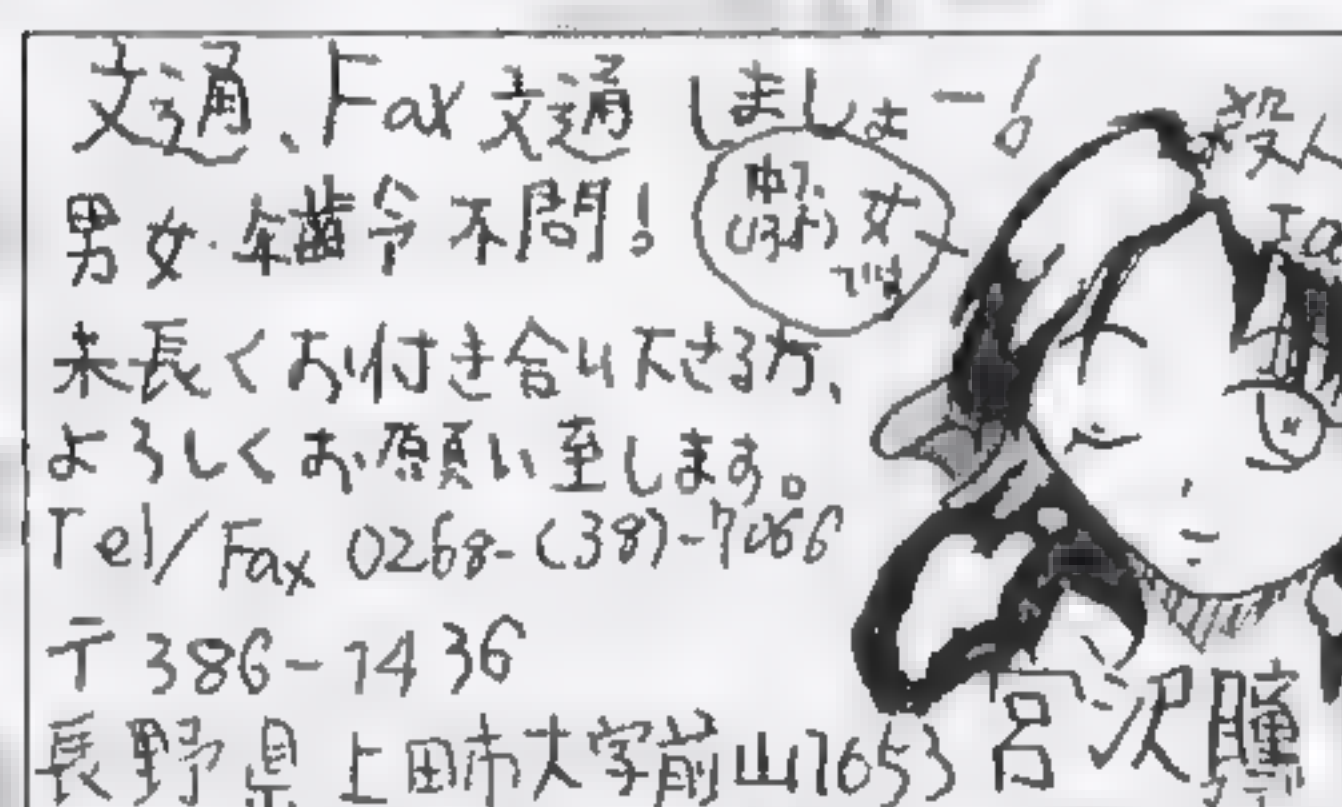 文通、Fax文通しましょー!
男女・年齢令不問!
(13才) 女
です
末長くお付き合い下さる方、
よろしくお願い至します。
Tel/Fax 0268-(38)-7066
〒386-1436
長野県上田市大学前山1653
宮沢瞳
殺人